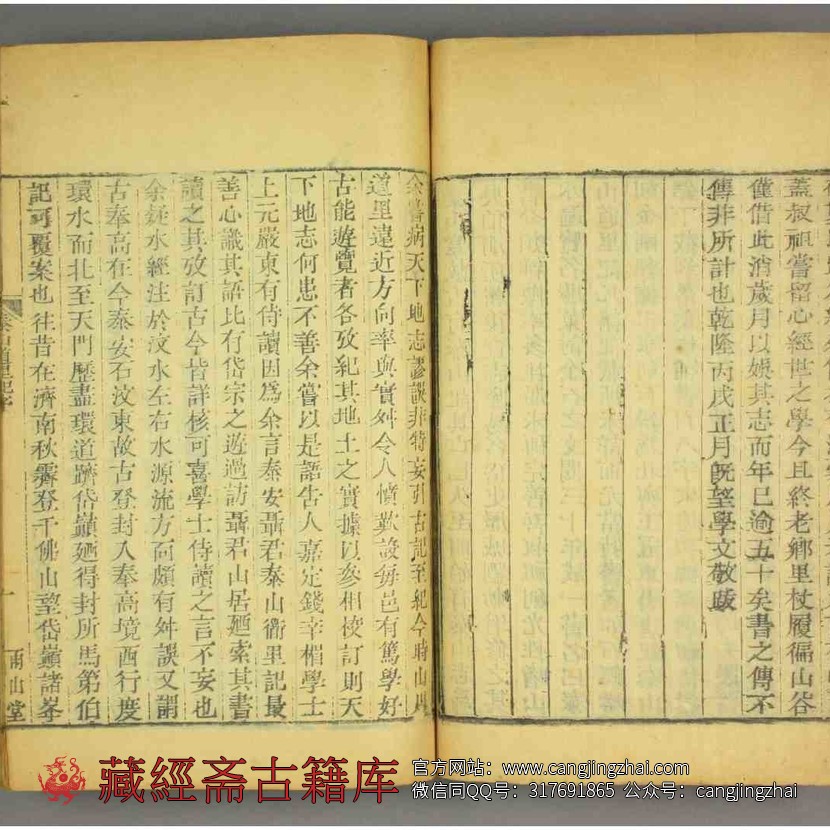 蓋叔頑嘗留心經世之學今且終老鄉里杖履徧山谷
僅借此消歲月以娛其志而年已逾五十矣書之傳不
傳非所計也乾隆丙戌正月旣望學文敬跋
余嘗病天下地志謬誤非特妄引古記至紀今時山川
道里遠近方向率與實舛令人憤歎設每邑有篤學好
古能遊覽者各攷紀其地土之實據以參相校訂則天
下地志何患不善余嘗以是語告人嘉定錢辛楣學士
上元嚴東有侍讀因爲余言泰安聶君泰山衜里記最
善心識其語比有岱宗之遊過訪聶君山居廼索其書
讀之其攷訂古今皆詳核可喜學士侍讀之言不妄也
余疑水經注於汶水左右水源流方向頗有舛誤又謂
古奉高在今泰安右汶東故古登封入奉高境西行度
環水而北至天門歷盡環道躋岱巔廼得封所馬第伯
記可覆案也往昔在濟南秋霽登千佛山望岱巔諸峯
泰山道里記序
一
雨山堂
藏經斋古籍库
官方网站：www.cangjingzhai.com
微信同QQ号：317691865 公众号：cangjingzhai